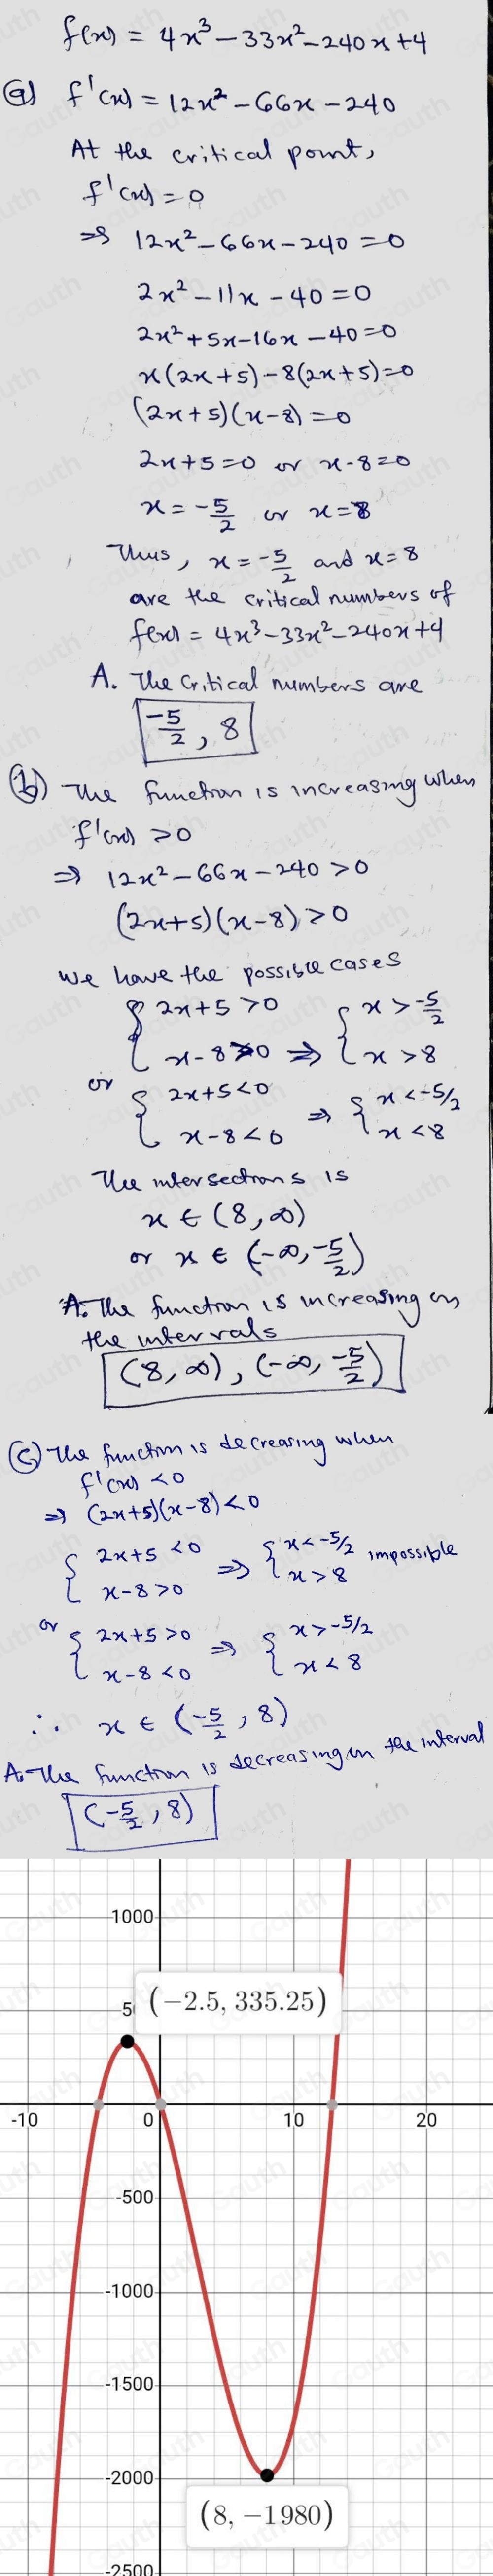 f(x) = 4x³ - 33x² - 240x + 4
(a) f'(x) = 12x² - 66x - 240
At the critical point,
f'(x) = 0
⇒ 12x² - 66x - 240 = 0
2x² - 11x - 40 = 0
2x² + 5x - 16x - 40 = 0
x(2x+5) - 8(2x+5) = 0
(2x+5)(x-8) = 0
2x+5=0 or x-8=0
x = -5/2 or x = 8
Thus, x = -5/2 and x = 8
are the critical numbers of
f(x) = 4x³ - 33x² - 240x + 4
A. The critical numbers are
-5/2, 8
(b) The function is increasing when
f'(x) > 0
⇒ 12x² - 66x - 240 > 0
(2x+5)(x-8) > 0
We have the possible cases
{ 2x+5 > 0 { x > -5/2
x-8 > 0 ⇒ x > 8
or { 2x+5 < 0 ⇒ { x < -5/2
x-8 < 0 x < 8
The intersections is
x ∈ (8, ∞)
or x ∈ (-∞, -5/2)
A. The function is increasing on
the intervals
(8, ∞), (-∞, -5/2)
(c) The function is decreasing when
f'(x) < 0
⇒ (2x+5)(x-8) < 0
{ 2x+5 < 0 ⇒ { x < -5/2 impossible
x-8 > 0 x > 8
or { 2x+5 > 0 ⇒ { x > -5/2
x-8 < 0 x < 8
∴ x ∈ (-5/2, 8)
A. The function is decreasing on the interval
(-5/2, 8)
1000
5 (-2.5, 335.25)
-10 0 10 20
-500
-1000
-1500
-2000
(8, -1980)
-2500